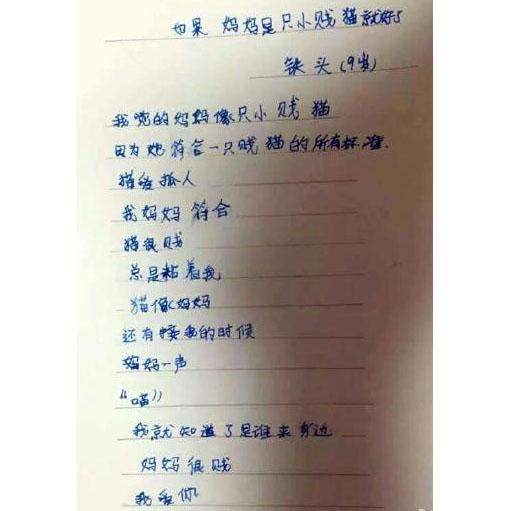 如果 妈妈是只小贱猫就好了
铁头(9岁)
我觉的妈妈像只小贱猫
因为她符合一只贱猫的所有标准.
猫爱抓人
我妈妈符合
猫很贱
总是粘着我
猫像妈妈
还有接我的时候
妈妈一声
“喵”
我就知道了是谁来身边
妈妈很贱
我爱你